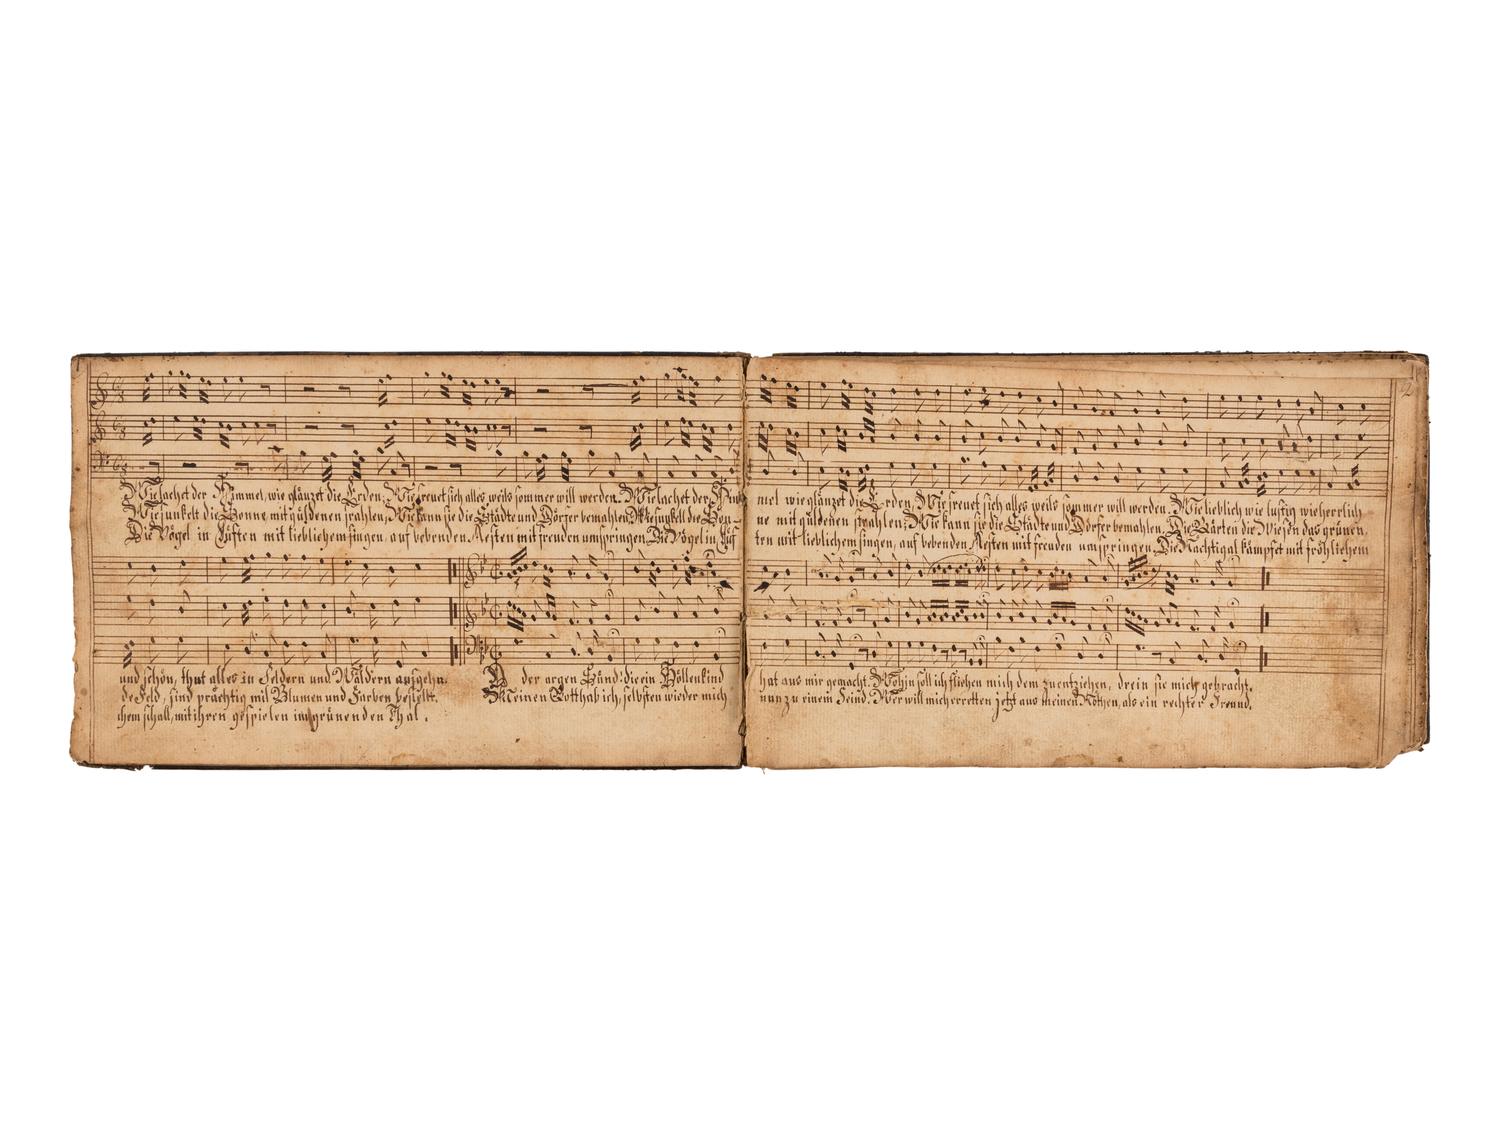 Wie lachet der Himmel, wie glänzet die Erden, Wie freuet sich alles weils sommer will werden. Wie lachet der Him-
Wie funkelt die Sonne mit guldenen strahlen, Wie kann sie die Städte und Dörfer bemahlen, Wie funkelt die Son-
Die Vögel in Lüften mit lieblichem singen, auf bebenden Aesten mit freuden umspringen, Die Vögel in Lüf-
und schön, thut alles in Feldern und Wäldern aufgehn.
de Feld, sind prächtig mit Blumen und Farben bestellt.
chem schall, mit ihren gespielen im grünenden Thal.
der argen Sünd: die ein Höllenkind
Meinen Gott hab ich, selbsten wieder mich
2
mel wie glänzet die Erden, Wie freuet sich alles weils sommer will werden. Wie lieblich wie lustig wie herrlich
ne mit guldenen strahlen, Wie kann sie die Städte und Dörfer bemahlen, Die Gärten die Wiesen das grünen,
ten mit lieblichem singen, auf bebenden Aesten mit freuden umspringen, Die Nachtigal kämpfet mit fröhlichem
hat aus mir gemacht. Wohin soll ich fliehen mich dem zuentziehen, drein sie mich gebracht.
nun zu einem Feind. Wer will mich erretten jetzt aus meinen Nöthen, als ein rechter Freund.